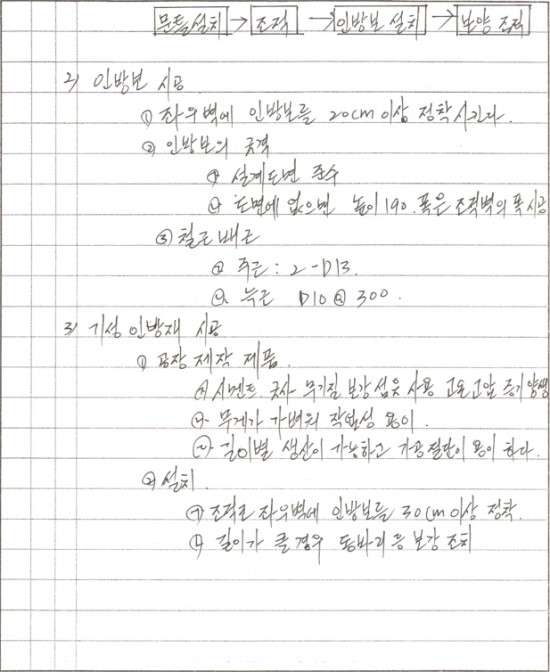 문틀설치 → 조적 → 인방보 설치 → 보양 조적
2) 인방보 시공
① 좌우벽에 인방보를 20cm 이상 정착시킨다.
② 인방보의 규격
㉮ 설계도면 준수
㉯ 도면에 없으면 높이 190. 폭은 조적벽의 폭 시공
③ 철근 배근
㉮ 주근 : 2-D13.
㉯ 늑근 D10 @ 300.
3) 기성 인방재 시공
① 공장 제작 제품.
㉮ 시멘트. 규사 무기질 보강 섬유 사용 고온고압 증기양생
㉯ 무게가 가벼워 작업성 용이.
㉰ 길이별 생산이 가능하고 가공절단이 용이 하다.
② 설치.
㉮ 조적조 좌우벽에 인방보를 30cm 이상 정착.
㉯ 길이가 클 경우 동바리 등 보강 조치